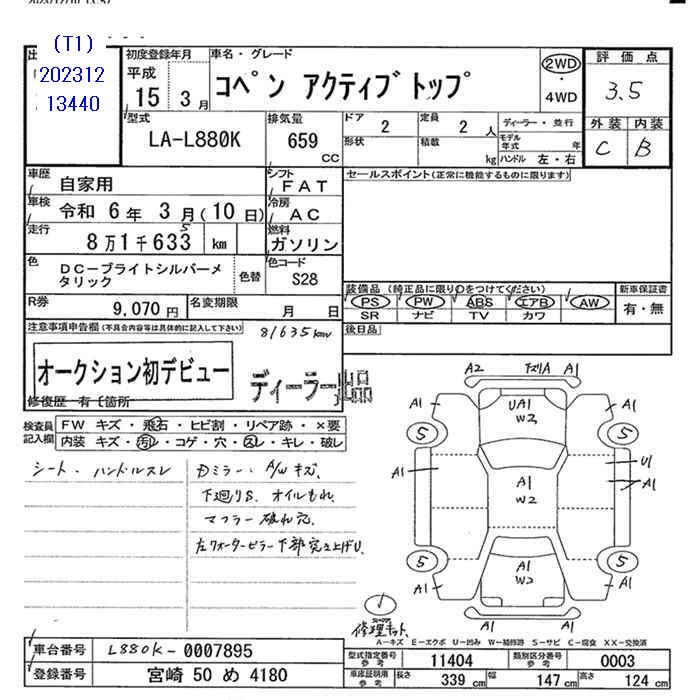 (T1)
202312
13440
出
初度登録年月
平成
15 3 月
車名・グレード
コペン アクティブトップ
2WD
・
4WD
評価点
3.5
外装 内装
C B
型式
LA-L880K
排気量
659
cc
ドア
2
定員
2 人
形状
積載
kg
ディーラー・並行
モデル
年式 年
ハンドル 左・右
車歴
自家用
シフト
FAT
セールスポイント(正常に機能するものに限ります)
車検
令和 6 年 3 月(10 日)
冷房
AC
走行
8万1千633 km
5
燃料
ガソリン
色
DC-ブライトシルバーメ
タリック
色替
色コード
S28
装備品(純正品に限り○をつけてください)
PS PW ABS エアB AW
SR ナビ TV カワ
新車保証書
有・無
R券
9,070 円
名変期限
月 日
後日品
注意事項申告欄(不具合内容等は具体的に記入して下さい)
81635km
オークション初デビュー
ディーラー出品
修復歴 有【箇所
検査員
記入欄
FW キズ・飛石・ヒビ割・リペア跡・×要
内装 キズ・汚レ・コゲ・穴・スレ・キレ・破レ
シート・ハンドルスレ
Dミラー・A/W キズ
下廻りS. オイルもれ
マフラー破れ穴
左クォーターピラー下部突き上げU.
A2 ズリA A1
A1 A1
UA1
W2
5 5
A1 U1
A1
A1
W2
5 5
A1
W2
A1 A1
A1
修理キット
A-キズ E-エクボ U-凹み W-補修跡 S-サビ C-腐食 XX-交換済
車台番号
L880K-0007895
登録番号
宮崎 50 め 4180
型式指定番号
参考
11404
類別区分番号
参考
0003
車庫証明用
参考
長さ 339 cm 幅 147 cm 高さ 124 cm